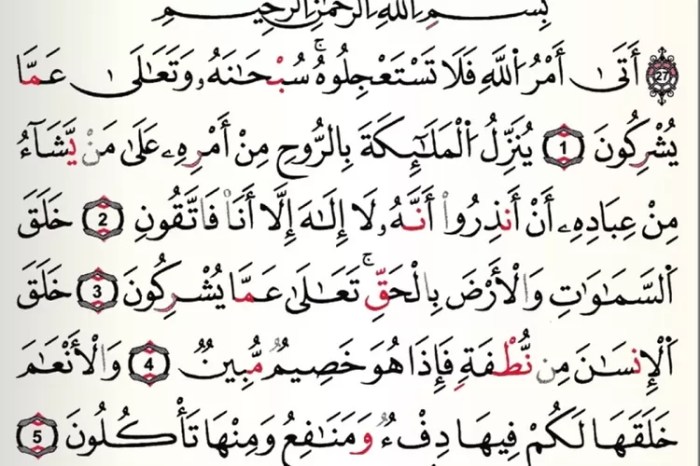 بِسْمِ اللَّهِ الرَّحْمَٰنِ الرَّحِيمِ
27 أَتَىٰ أَمْرُ اللَّهِ فَلَا تَسْتَعْجِلُوهُ ۚ سُبْحَانَهُ وَتَعَالَىٰ عَمَّا
يُشْرِكُونَ 1 يُنَزِّلُ الْمَلَائِكَةَ بِالرُّوحِ مِنْ أَمْرِهِ عَلَىٰ مَنْ يَّشَآءُ
مِنْ عِبَادِهِ أَنْ أَنذِرُوا أَنَّهُ لَا إِلَٰهَ إِلَّا أَنَا فَاتَّقُونِ 2 خَلَقَ
السَّمَاوَاتِ وَالْأَرْضَ بِالْحَقِّ ۚ تَعَالَىٰ عَمَّا يُشْرِكُونَ 3 خَلَقَ
الْإِنسَانَ مِن نُّطْفَةٍ فَإِذَا هُوَ خَصِيمٌ مُّبِينٌ 4 وَالْأَنْعَامَ
خَلَقَهَا لَكُمْ فِيهَا دِفْءٌ وَمَنَافِعُ وَمِنْهَا تَأْكُلُونَ 5